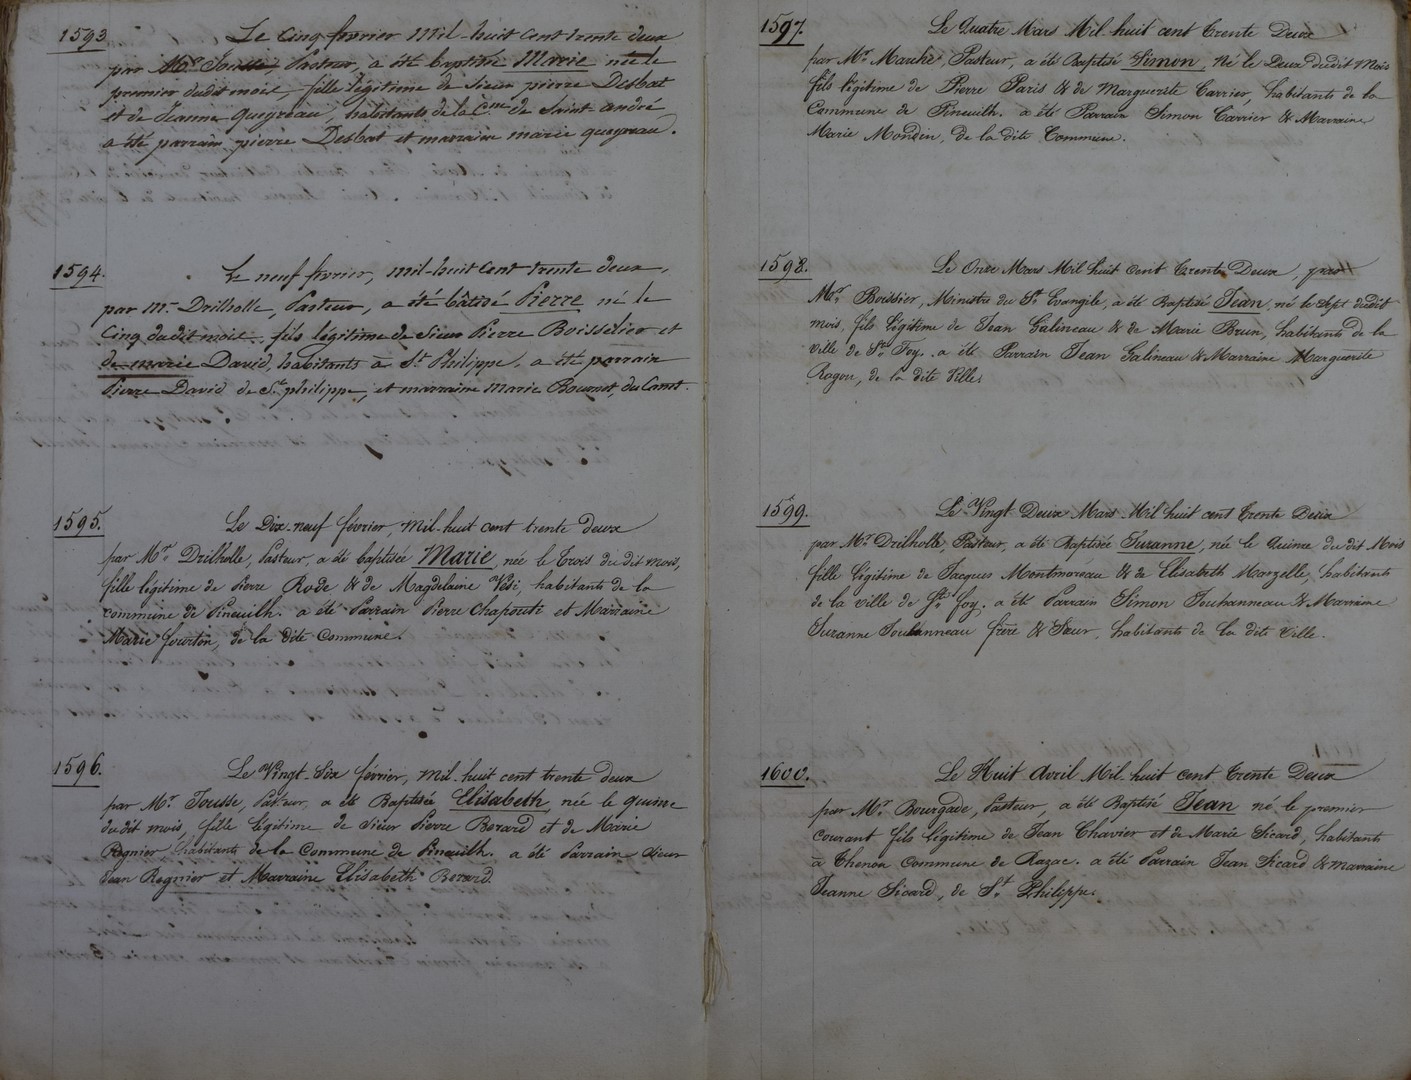 1593
Le Cinq fevrier Mil-huit Cent trente deux
par Mr. Jousse, Pasteur, a été baptisée Marie née le
premier dudit mois, fille légitime de Sieur pierre Desbat
et de Jeanne queyreau, habitants de la Cne de Saint-andré,
a été parrain pierre Desbat et marraine marie queyreau.
1594.
Le neuf fevrier, mil-huit Cent trente deux,
par Mr Drilholle, Pasteur, a été bâtisé Pierre né le
Cinq du dit mois, fils légitime de Sieur Pierre Boisselier et
de marie David, habitants à St Philippe, a été parrain
Pierre David de St philippe, et marraine Marie Bournet, du Canet.
1595.
Le Dix-neuf février, Mil-huit cent trente deux
par Mr. Drilholle, Pasteur, a été baptisée Marie née le Trois du dit mois,
fille légitime de Pierre Rode & de Magdelaine Vesi, habitants de la
commune de Pineuilh. a été Parrain Pierre Chapoute et Marraine
Marie fourton, de la dite Commune.
1596.
Le Vingt Six février, Mil-huit cent trente deux
par Mr Jousse, Pasteur, a été Baptisée Elisabeth née le quinze
du dit mois, fille légitime de Sieur Pierre Berard et de Marie
Regnier habitants de la Commune de Pineuilh. a été Parrain Sieur
Jean Regnier et Marraine Elisabeth Berard.
1597.
Le Quatre Mars Mil huit cent Trente Deux
par Mr. Mauhé, Pasteur, a été Baptisé Simon, Né le Deux dudit Mois
fils légitime de Pierre Paris & de Marguerite Carrier, habitants de la
Commune de Pineuilh. a été Parrain Simon Carrier & Marraine
Marie Mondin, de la dite Commune.
1598.
Le Onze Mars Mil huit cent Trente Deux, par
Mr. Boissier, Ministre du St Evangile, a été Baptisé Jean, né le Sept dudit
mois, fils légitime de Jean Galineau & de Marie Brun, habitants de la
ville de Ste Foy. a été Parrain Jean Galineau & Marraine Marguerite
Ragou, de la dite Ville.
1599.
Le Vingt Deux Mars Mil huit cent Trente Deux
par Mr. Drilholle, Pasteur, a été Baptisée Suzanne, née le Quinze du dit Mois
fille légitime de Jacques Montmoreau & de Elisabeth Marzelle, habitants
de la ville de Ste foy, a été Parrain Simon Jouhanneau & Marraine
Suzanne Jouhanneau frère & Sœur, habitants de la dite Ville.
1600.
Le Huit Avril Mil huit cent Trente Deux
par Mr Bourgade, Pasteur, a été Baptisé Jean né le premier
courant fils légitime de Jean Chavier et de Marie Sicard, habitants
à Thenon Commune de Razac. a été Parrain Jean Sicard & marraine
Jeanne Sicard, de St Philippe.